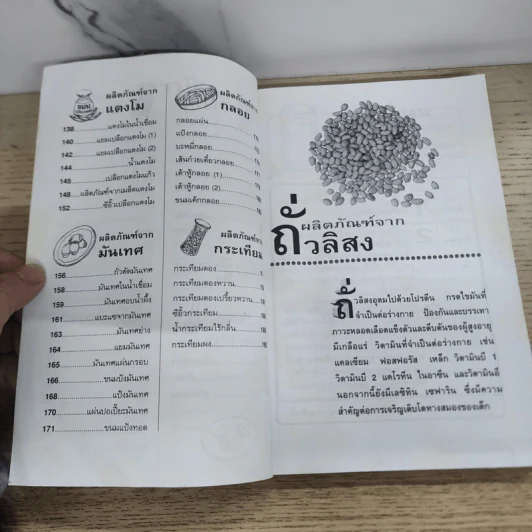 ผลิตภัณฑ์จาก
แตงโม
138 แตงโมในน้ำเชื่อม
140 แยมเปลือกแตงโม (1)
142 แยมเปลือกแตงโม (2)
144 น้ำแตงโม
145 เปลือกแตงโมแก้ว
148 ผลิตภัณฑ์จากเมล็ดแตงโม
152 ซีอิ๊วเปลือกแตงโม
ผลิตภัณฑ์จาก
มันเทศ
156 ถั่วตัดมันเทศ
158 มันเทศในน้ำเชื่อม
159 มันเทศอบน้ำผึ้ง
161 แบะแซจากมันเทศ
163 มันเทศย่าง
164 แยมมันเทศ
165 มันเทศแผ่นกรอบ
166 ขนมปังมันเทศ
168 แป้งมันเทศ
170 แผ่นปอเปี๊ยะมันเทศ
171 ขนมแป้งทอด
ผลิตภัณฑ์จาก
กลอย
กลอยแผ่น
แป้งกลอย
บะหมี่กลอย
เส้นก๋วยเตี๋ยวกลอย
เต้าหู้กลอย (1)
เต้าหู้กลอย (2)
ขนมเค้กกลอย
ผลิตภัณฑ์จาก
กระเทียม
กระเทียมดอง
กระเทียมดองหวาน
กระเทียมดองเปรี้ยวหวาน
ซีอิ๊วกระเทียม
น้ำกระเทียมไร้กลิ่น
กระเทียมผง
ผลิตภัณฑ์จาก
ถั่วลิสง
ถั่วลิสงอุดมไปด้วยโปรตีน กรดไขมันที่
จำเป็นต่อร่างกาย ป้องกันและบรรเทา
ภาวะหลอดเลือดแข็งตัวและตีบตันของผู้สูงอายุ
มีเกลือแร่ วิตามินที่จำเป็นต่อร่างกาย เช่น
แคลเซียม ฟอสฟอรัส เหล็ก วิตามินบี 1
วิตามินบี 2 แคโรทีน ไนอาซีน และวิตามินอี
นอกจากนี้ยังมีเลซิทิน เซฟาริน ซึ่งมีความ
สำคัญต่อการเจริญเติบโตทางสมองของเด็ก